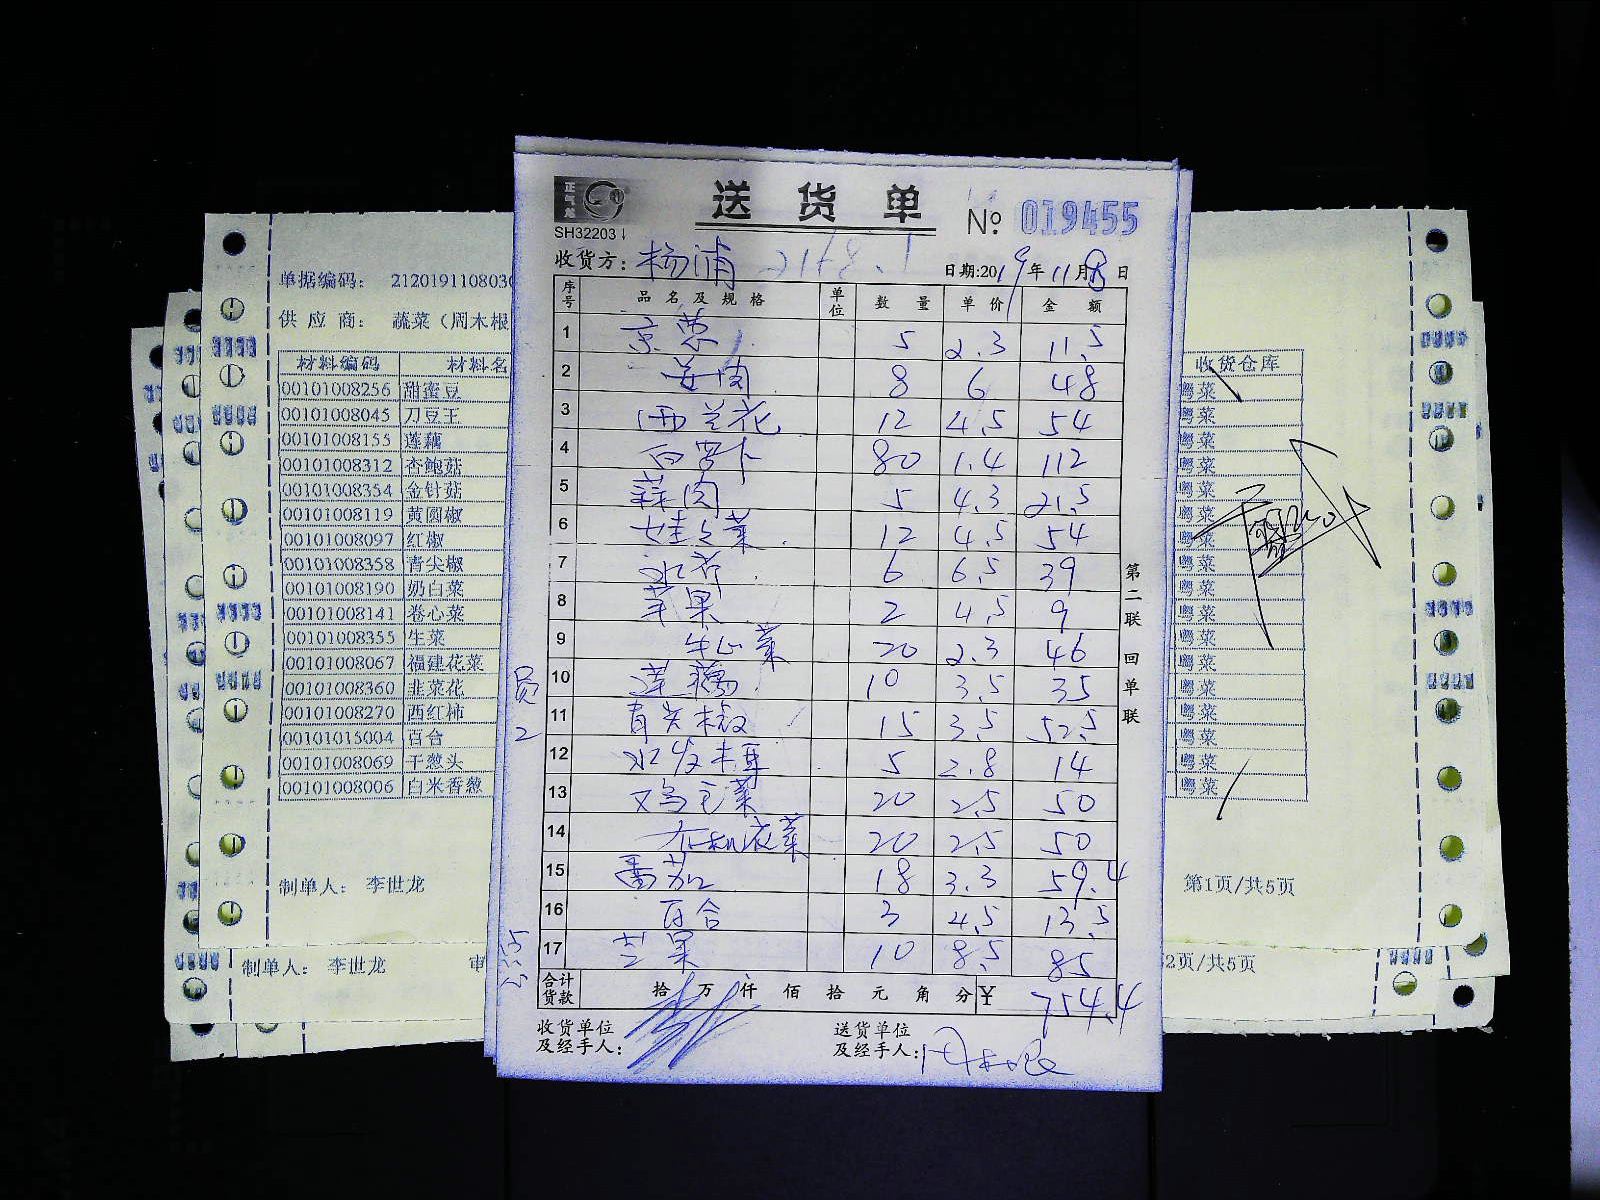 正气鸟
送货单
SH32203
№ 019455
收货方: 杨浦 2148.1
日期:2019年11月8日
序号 品名及规格 单位 数量 单价 金额
1 京葱 5 2.3 11.5
2 姜肉 8 6 48
3 西兰花 12 4.5 54
4 白罗卜 80 1.4 112
5 蒜肉 5 4.3 21.5
6 娃娃菜 12 4.5 54
7 水芹 6 6.5 39
8 苹果 2 4.5 9
9 牛心菜 20 2.3 46
10 莲藕 10 3.5 35
11 青尖椒 15 3.5 52.5
12 水发木耳 5 2.8 14
13 鸡毛菜 20 2.5 50
14 杭州底菜 20 2.5 50
15 番茄 18 3.3 59.4
16 百合 3 4.5 13.5
17 芒果 10 8.5 85
合计货款 拾 万 仟 佰 拾 元 角 分 ¥ 754.4
收货单位及经手人:
送货单位及经手人: 周木根
第二联 回单联
单据编码: 2120191108030
供应商: 蔬菜（周木根
材料编码 材料名
00101008256 甜蜜豆
00101008045 刀豆王
00101008155 莲藕
00101008312 杏鲍菇
00101008354 金针菇
00101008119 黄圆椒
00101008097 红椒
00101008358 青尖椒
00101008190 奶白菜
00101008141 卷心菜
00101008355 生菜
00101008067 福建花菜
00101008360 韭菜花
00101008270 西红柿
00101015004 百合
00101008069 干葱头
00101008006 白米香葱
制单人: 李世龙
制单人: 李世龙 审
收货仓库
粤菜
粤菜
粤菜
粤菜
粤菜
粤菜
粤菜
粤菜
粤菜
粤菜
粤菜
粤菜
粤菜
粤菜
粤菜
粤菜
粤菜
第1页/共5页
2页/共5页